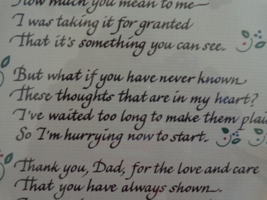 How much you mean to me—
I was taking it for granted
That it's something you can see.
But what if you have never known
These thoughts that are in my heart?
I've waited too long to make them plain
So I'm hurrying now to start.
Thank you, Dad, for the love and care
That you have always shown.